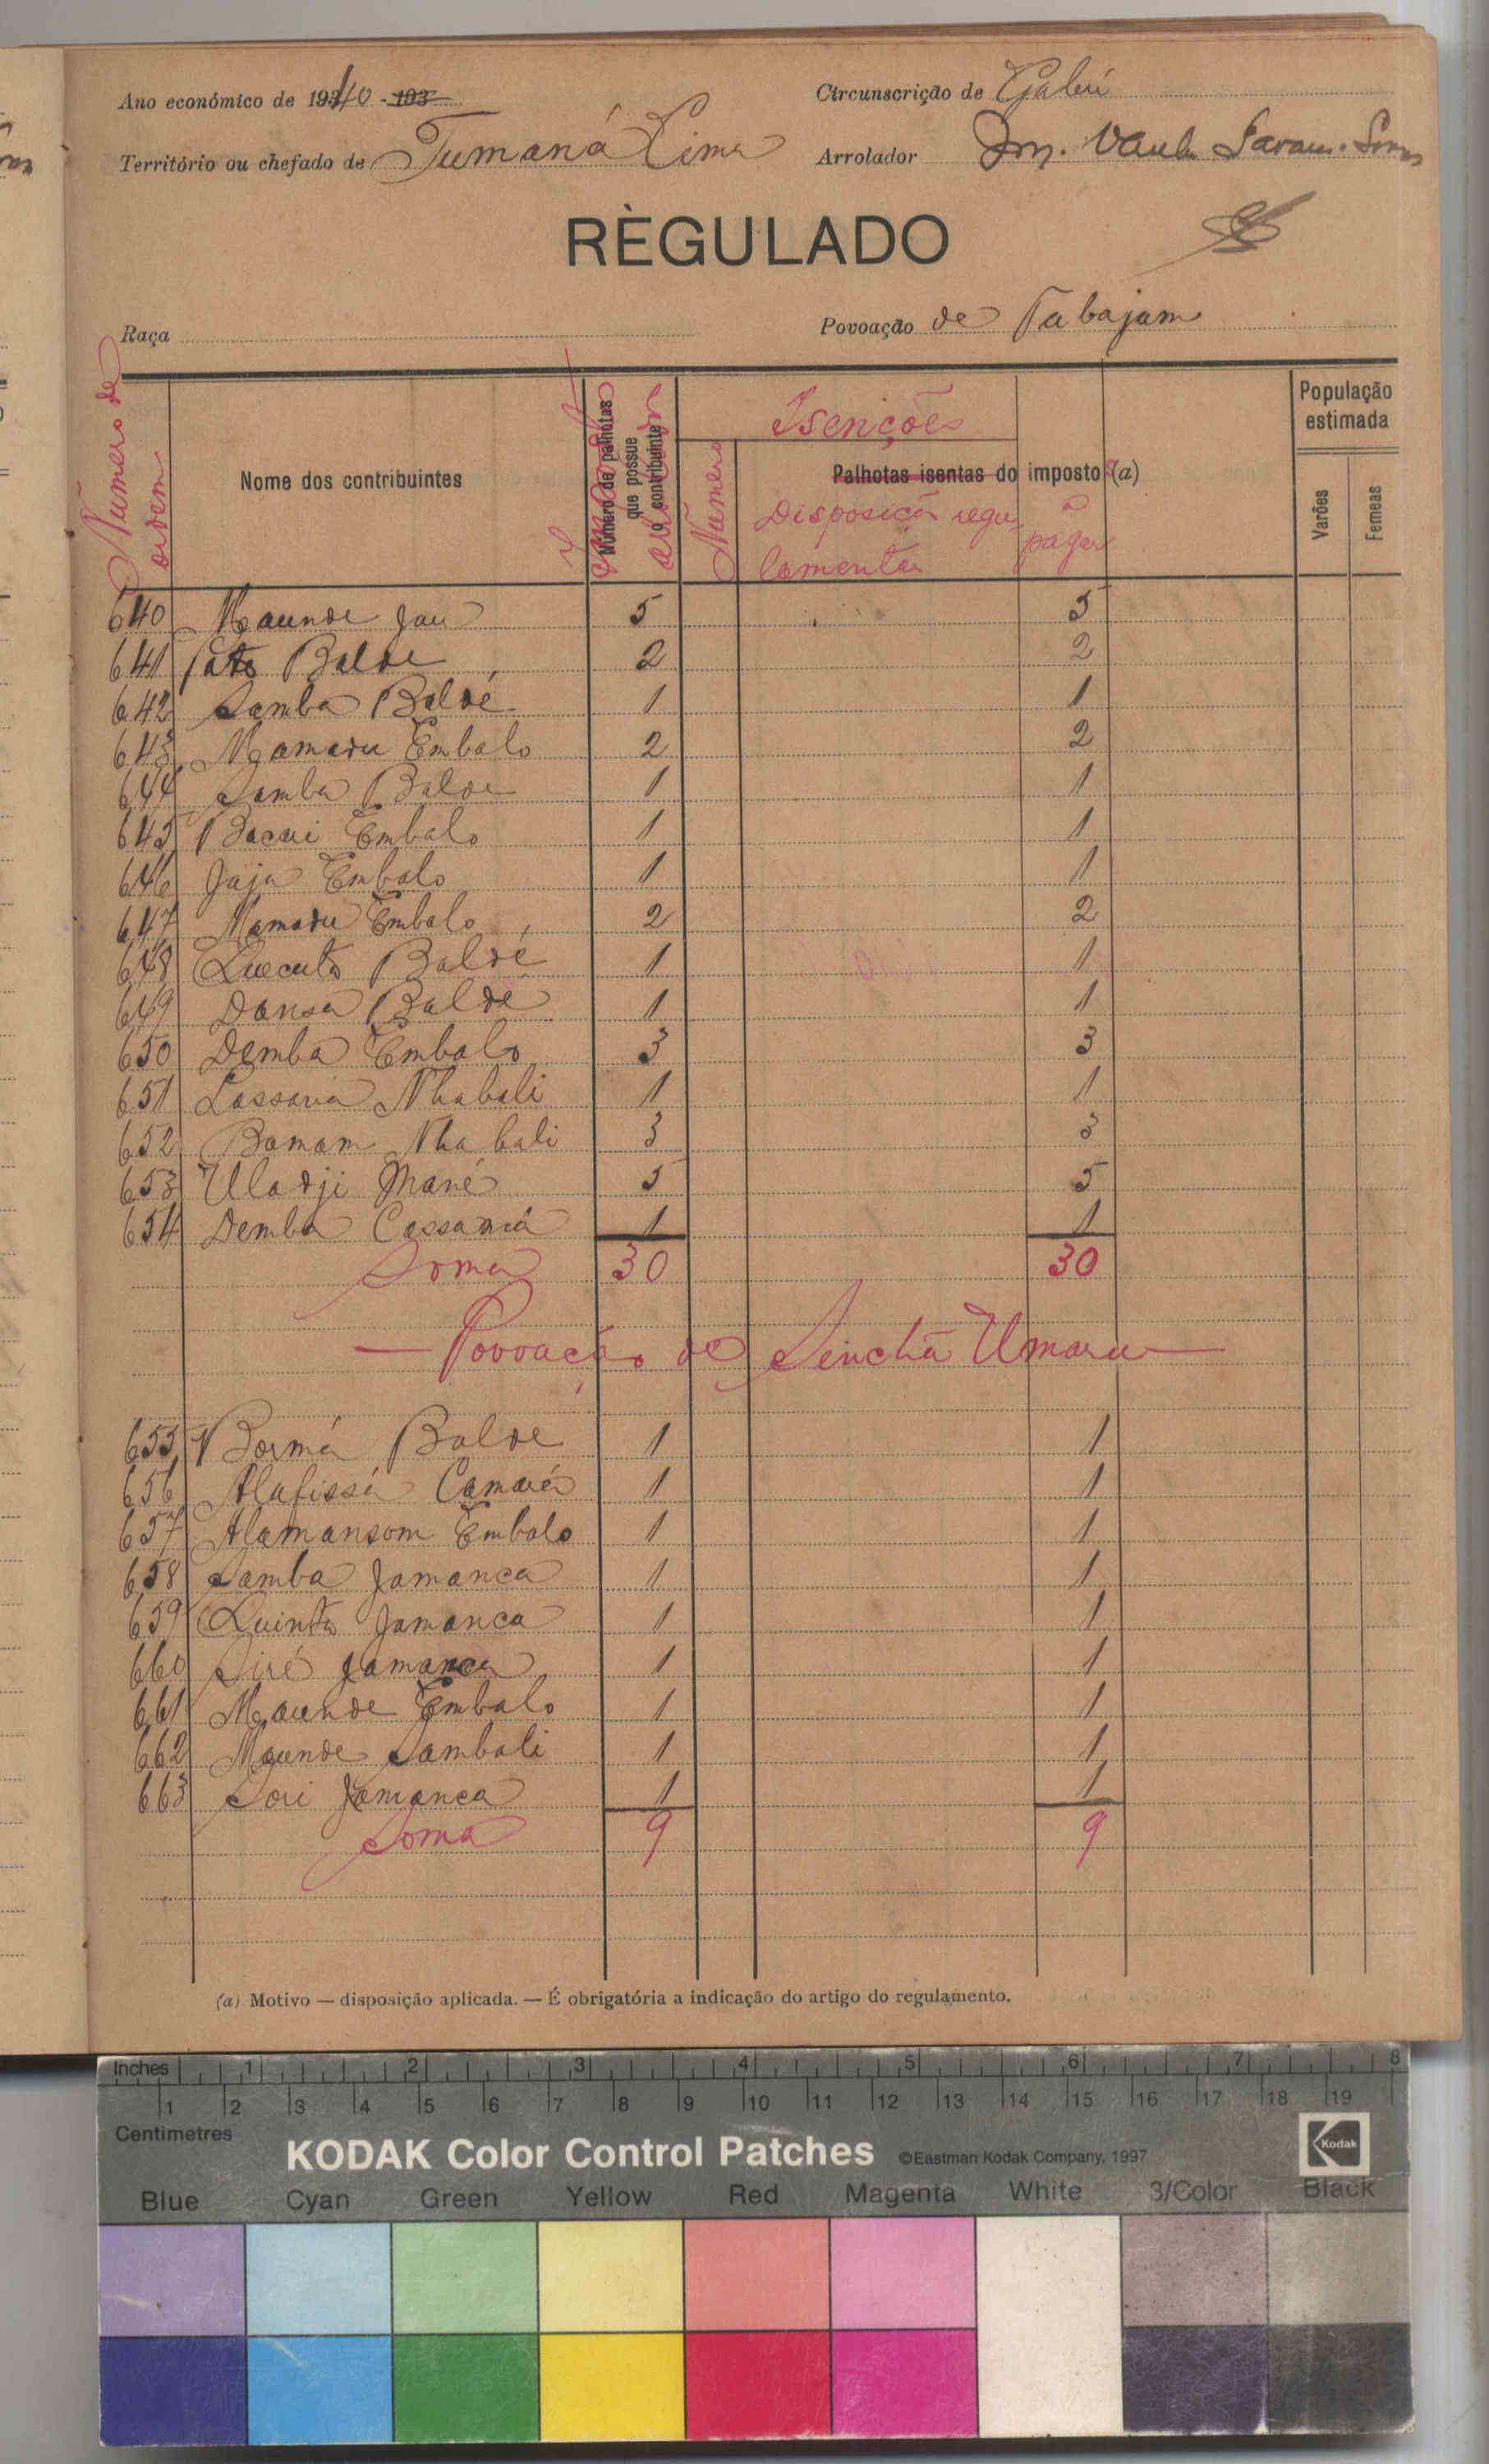 Ano económico de 1940 - 193
Circunscrição de Gabú
Território ou chefado de Tumaná Cima
Arrolador
RÈGULADO
Raça
Povoação de Tabajam
Numero de ordem
Nome dos contribuintes
Número de palhotas que possue o contribuinte
Isenções
Numero
Palhotas isentas do imposto (a)
Disposição regulamentar
a pagar
População estimada
Varões
Femeas
640 Maunde Jau 5 5
641 Sato Balde 2 2
642 Samba Baldé 1 1
643 Mamadu Embalo 2 2
644 Samba Balde 1 1
645 Bacari Embalo 1 1
646 Jaja Embalo 1 1
647 Mamadu Embalo 2 2
648 Quecuto Baldé 1 1
649 Dansa Baldé 1 1
650 Demba Embalo 3 3
651 Lassana Nhabali 1 1
652 Bamam Nhabali 3 3
653 Uladji Mané 5 5
654 Demba Cassamá 1 1
Soma 30 30
— Povoação de Sinchã Umaru —
655 Bormá Balde 1 1
656 Alafissá Camará 1 1
657 Alamansom Embalo 1 1
658 Samba Jamanca 1 1
659 Quinta Jamanca 1 1
660 Siré Jamanca 1 1
661 Maunde Embalo 1 1
662 Maunde Sambali 1 1
663 Sori Jamanca 1 1
Soma 9 9
(a) Motivo — disposição aplicada. — É obrigatória a indicação do artigo do regulamento.
Inches 1 2 3 4 5 6 7 8
1 2 3 4 5 6 7 8 9 10 11 12 13 14 15 16 17 18 19
Centimetres
KODAK Color Control Patches ©Eastman Kodak Company, 1997 Kodak
Blue Cyan Green Yellow Red Magenta White 3/Color Black